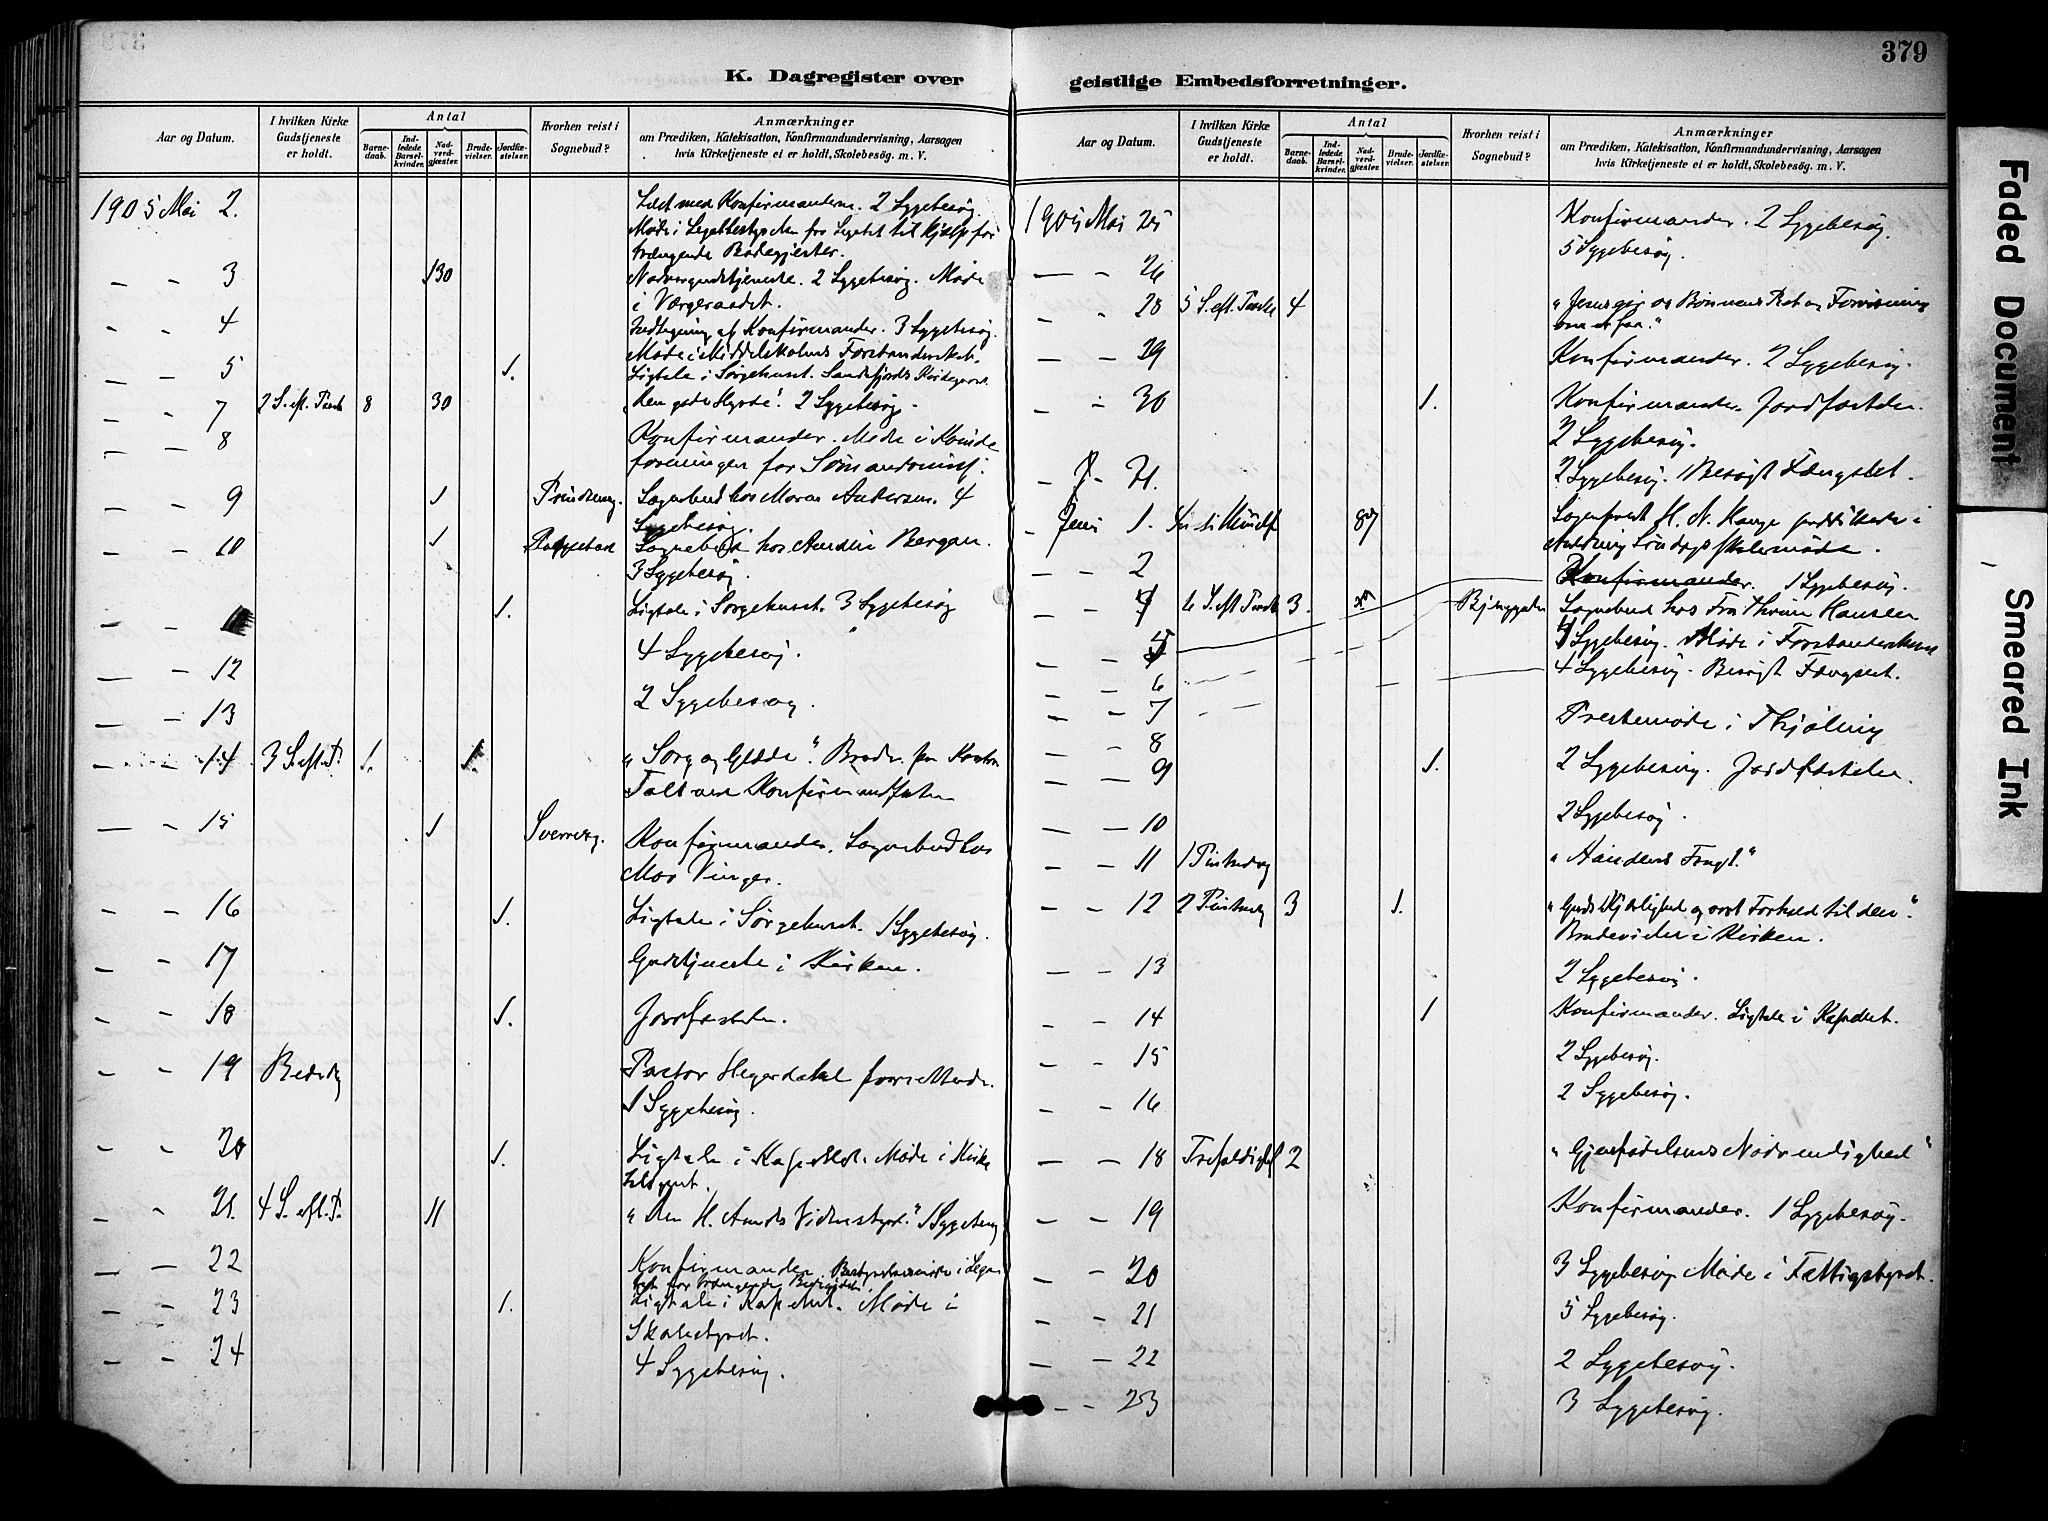 379
K. Dagregister over geistlige Embedsforretninger.
Aar og Datum.
I hvilken Kirke Gudstjeneste er holdt.
Antal
Barnedaab.
Indledede Barselkvinder.
Nadverdgjæster.
Brudevielser.
Jordfæstelser.
Hvorhen reist i Sognebud?
Anmærkninger
om Prædiken, Katekisation, Konfirmandundervisning, Aarsagen
hvis Kirketjeneste ei er holdt, Skolebesög. m. V.
1905 Mai 2. Læst med Konfirmanderne. 2 Sygebesøg.
Møde i Legatbestyrelsen for Legatet til Hjælp for
trængende Badegjester.
- - 3 130 2 Sygebesøg. Møde
i Værgeraadet.
- - 4 Indlægning af Konfirmander. 3 Sygebesøg.
Møde i Middelskolens Forstanderskab.
- - 5 1. Ligtale i Sørgehuset. Sandefjords
- - 7 2 S. eft. Paask 8 30 "Den gode Hyrde". 2 Sygebesøg.
- - 8 Konfirmander. Møde i Kvinde
foreningen for Sømandsmiss.
- - 9 1 Sognebud hos Andersen. 4
Sygebesøg.
- - 10 1 Sognebud hos Bergan.
3 Sygebesøg.
- - 11 1. Ligtale i Sørgehuset. 3 Sygebesøg
4 Sygebesøg.
- - 12
2 Sygebesøg.
- - 13
- - 14 3 S. eft. P. 1. 1. "Sorg og Glæde".
Konfirmand
- - 15 1 Konfirmander. Sognebud hos
Mor Vinger.
- - 16 1. Ligtale i Sørgehuset. 1 Sygebesøg.
- - 17 Gudstjeneste i Kirken.
- - 18 1. Jordfæstelse.
- - 19 Bededg Pastor Hegerdahl
1 Sygebesøg.
- - 20 1. Ligtale i Kapellet. Møde i Kirke
tilsynet.
- - 21. 4 S. eft. P. 11 "Den H. Aands Vidnesbyrd." 1 Sygebesøg
- - 22 Konfirmander. Bestyrelsesmøde i Lega
tet for trængende
- - 23 1. Ligtale i Kapellet. Møde i
Skolestyret.
- - 24 4 Sygebesøg.
Aar og Datum.
I hvilken Kirke Gudstjeneste er holdt.
Antal
Barnedaab.
Indledede Barselkvinder.
Nadverdgjæster.
Brudevielser.
Jordfæstelser.
Hvorhen reist i Sognebud?
Anmærkninger
om Prædiken, Katekisation, Konfirmandundervisning, Aarsagen
hvis Kirketjeneste ei er holdt, Skolebesög. m. V.
1905 Mai 25 Konfirmander. 2 Sygebesøg.
- - 26 5 Sygebesøg.
- - 28 5 S. eft. Paaske 4 "Jesus gir os Bønnens Ret og Forvisning
om at faa."
- - 29 Konfirmander. 2 Sygebesøg.
- - 30 1. Konfirmander. Jordfæstelse.
2 Sygebesøg.
- - 31. 2 Sygebesøg. Besøgt Fængslet.
- Juni 1. 87 Sogneprest H. N. Hauge prædikede i
Anledning Søndagsskolemøde.
- - 2 Konfirmander. 1 Sygebesøg.
- - 4 6 S. eft Paask 3. Sognebud hos Fru Hansen
- - 5 4 Sygebesøg. Møde i Forstanderskabet
- - 6 4 Sygebesøg. Besøgt Fængslet.
- - 7 Prestemøde i Thjølling
- - 8
- - 9 1. 2 Sygebesøg. Jordfæstelse.
- - 10 2 Sygebesøg.
- - 11 1 Pinsedag "Aandens Frugt."
- - 12 2 Pinsedg 3 1. "Guds Kjærlighed og vort Forhold til den".
Brudevielse i Kirken.
- - 13 2 Sygebesøg.
- - 14 1 Konfirmander. Ligtale i Kapellet.
- - 15 2 Sygebesøg.
- - 16 2 Sygebesøg.
- - 18 Trefoldighed 2 "Gjenfødelsens Nødvendighed"
- - 19 Konfirmander. 1 Sygebesøg.
- - 20 3 Sygebesøg. Møde i Fattigstyret.
- - 21 5 Sygebesøg.
- - 22 2 Sygebesøg.
- - 23 3 Sygebesøg.
Faded Document
Smeared Ink